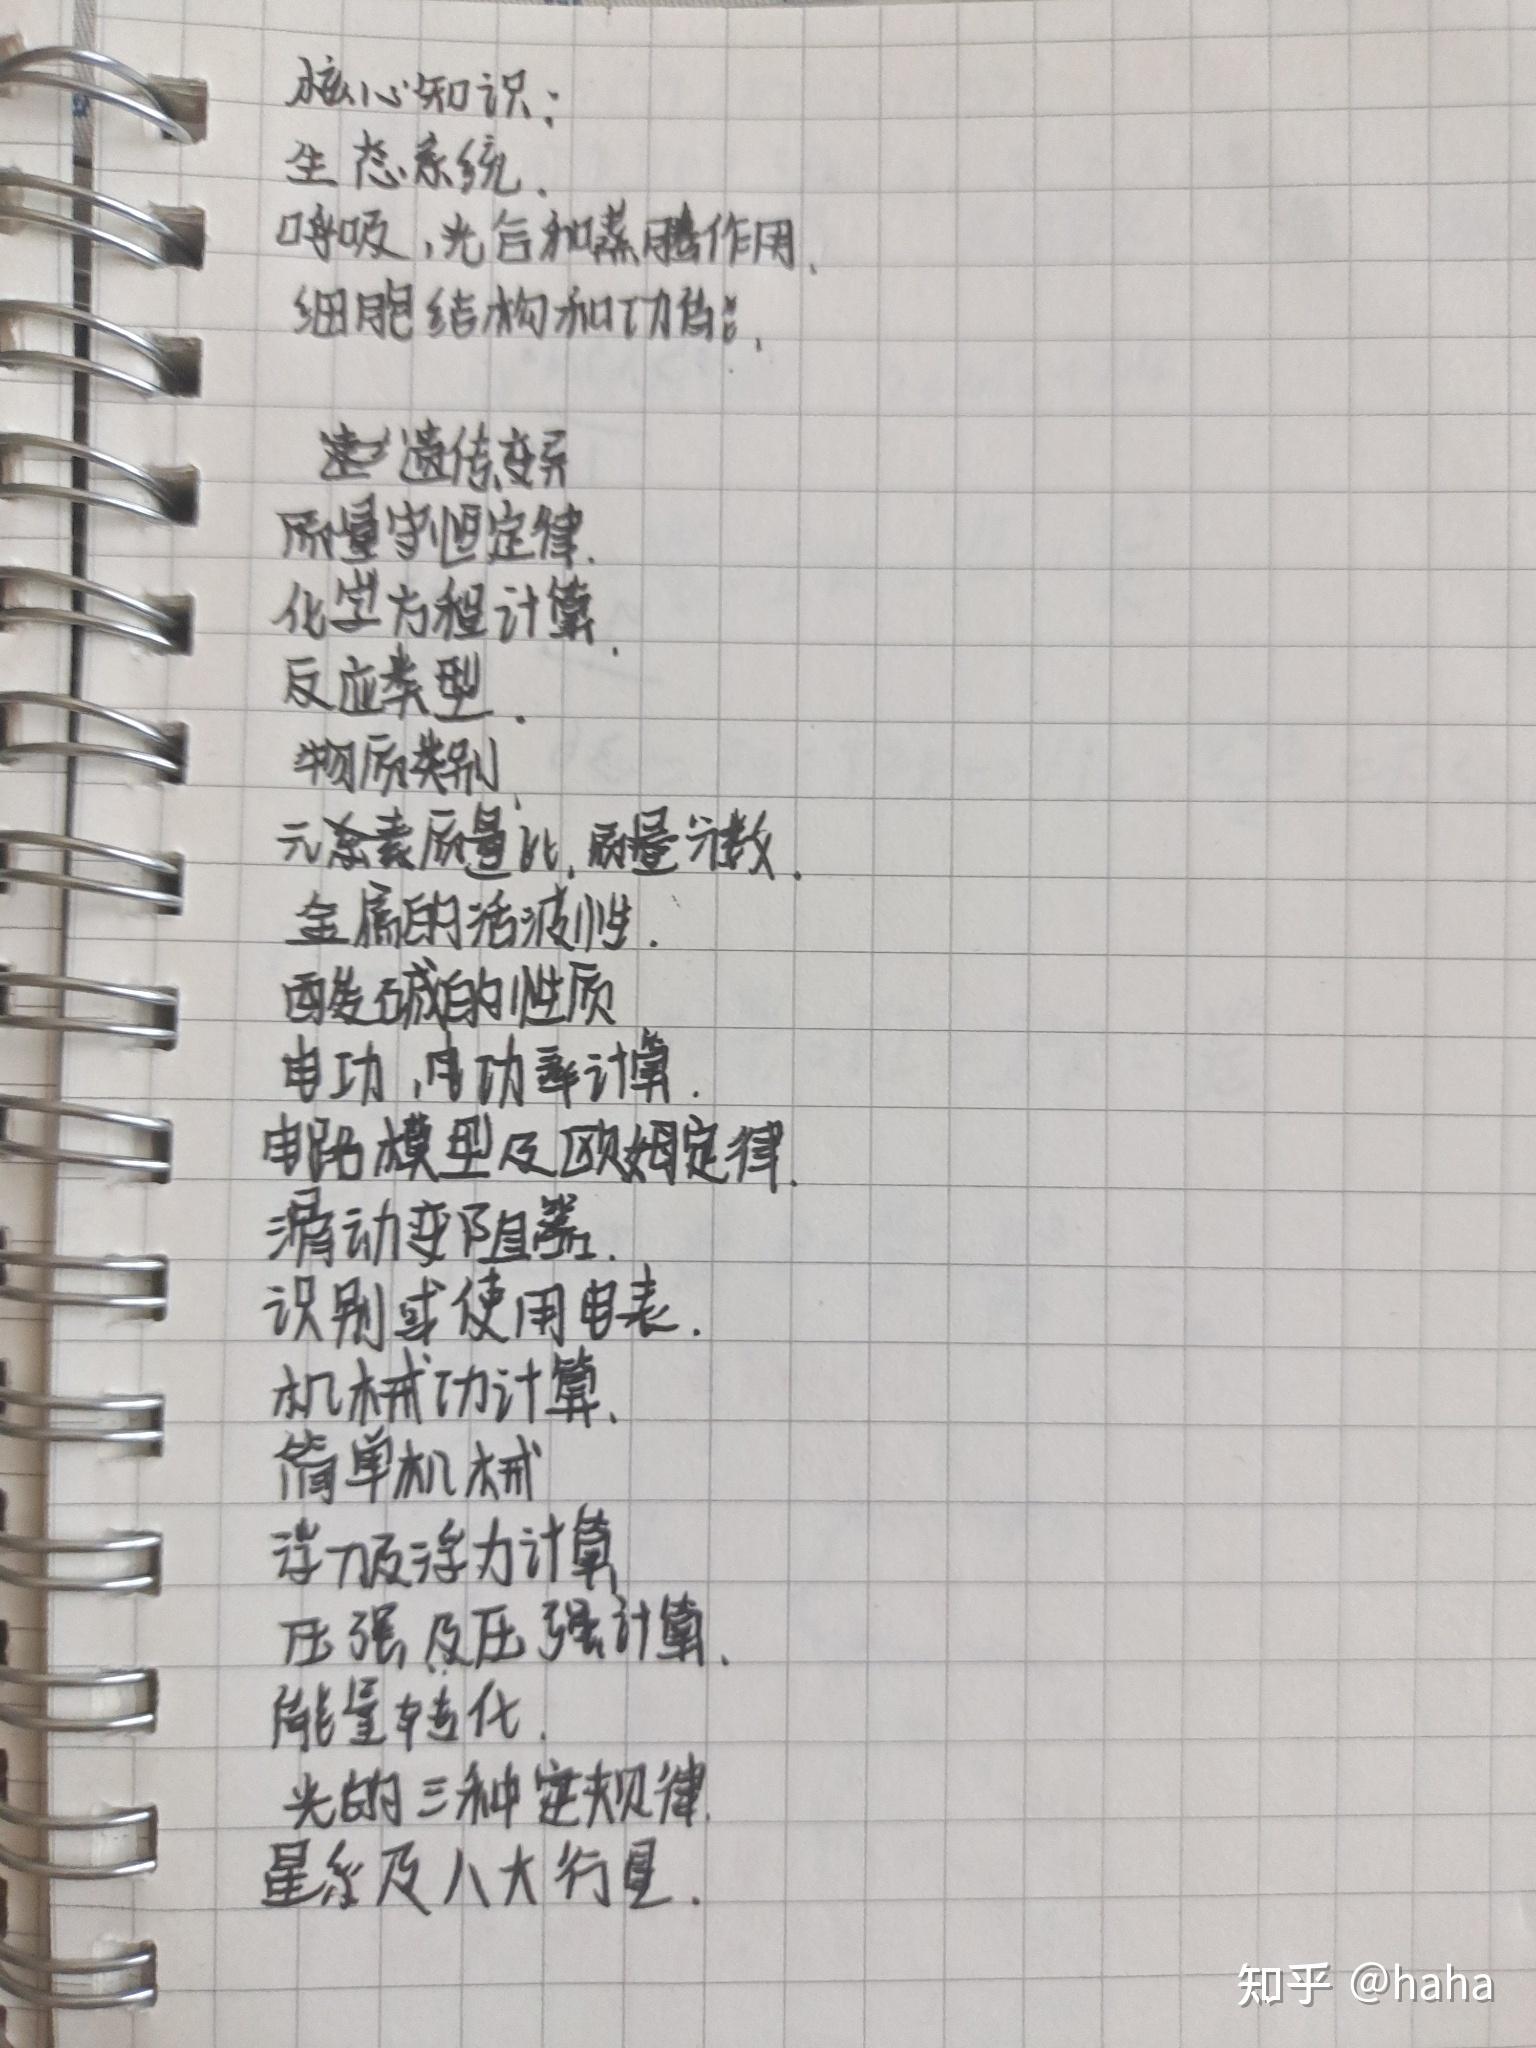 核心知识:
生态系统.
呼吸,光合和蒸腾作用.
细胞结构和功能.
遗传变异
质量守恒定律.
化学方程计算.
反应类型.
物质类别.
元素质量比,质量分数.
金属的活波性.
酸碱的性质
电功,电功率计算.
电路模型及欧姆定律.
滑动变阻器.
识别或使用电表.
机械功计算.
简单机械
浮力及浮力计算
压强及压强计算.
能量转化.
光的三种定规律.
星系及八大行星.
知乎 @haha